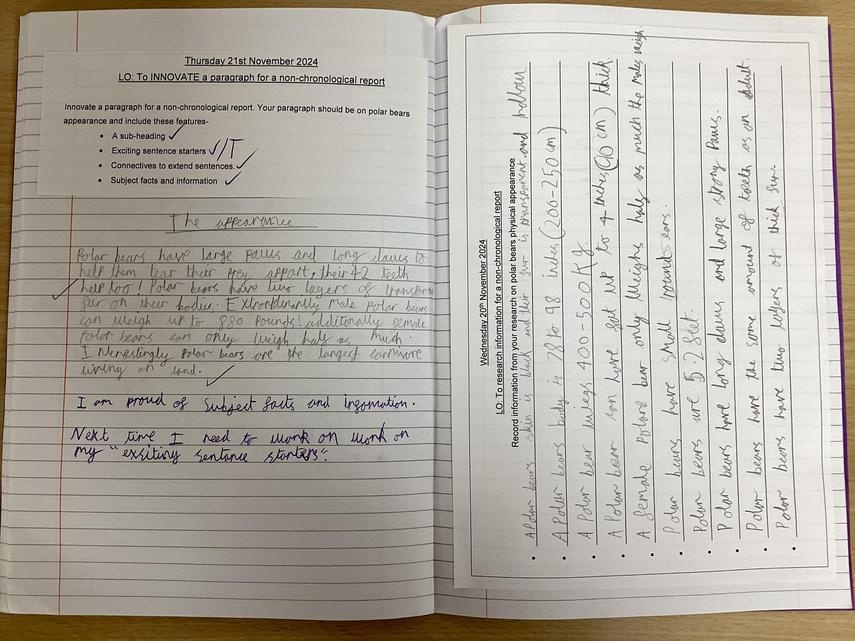 Thursday 21st November 2024
LO: To INNOVATE a paragraph for a non-chronological report
Innovate a paragraph for a non-chronological report. Your paragraph should be on polar bears
appearance and include these features-
• A sub-heading
• Exciting sentence starters I/T
• Connectives to extend sentences.
• Subject facts and information
The appearance
Polar bears have large paws and long claws to
help them tear their prey appart, their 42 teeth
help too! Polar bears have two layers of
fur on their bodies. Male Polar bears
can weigh up to 880 pounds! additonally female
Polar bears can only weigh half as much.
Interestingly Polar bears are the largest carnivore
on land.
I am proud of Subject facts and information.
Next time I need to work on work on
my "exsiting sentance starters".
Wednesday 20th November 2024
LO: To research information for a non-chronological report
Record information from your research on polar bears physical appearance
• A Polar bears skin is black and their fur is transparent and hollow
• A Polar bears body is 78 to 98 inches (200-250 cm)
• A Polar bear weighs 400-500 Kg.
• A Polar bear can have fat up to 4 inches (10 cm) thick
• A female Polar bear only weighs half as much the males weigh.
• Polar bears have small round ears.
• Polar bears are 5.2 feet.
• Polar bears have long claws and large strong Paws.
• Polar bears have the same amount of teeth as an adult.
• Polar bears have two layers of thick fur.